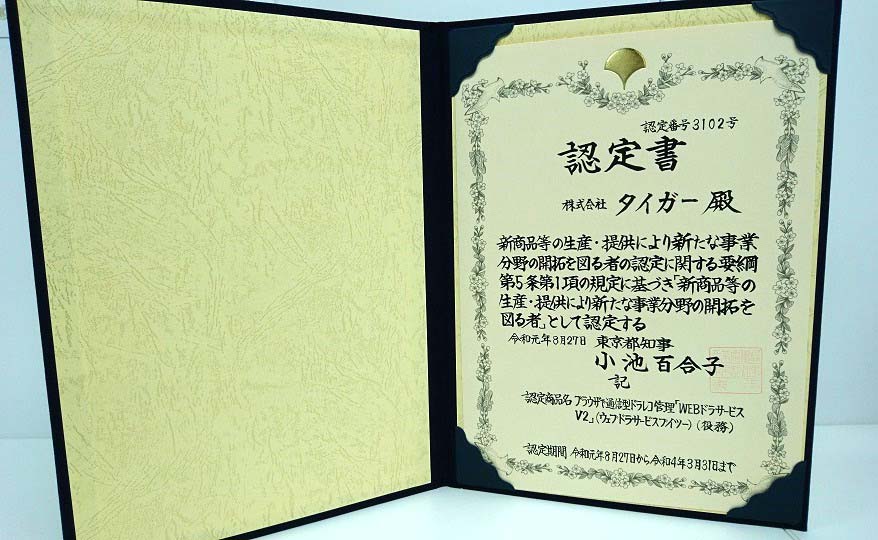 認定番号3102号
認定書
株式会社 タイガー 殿
新商品等の生産・提供により新たな事業
分野の開拓を図る者の認定に関する要綱
第5条第1項の規定に基づき「新商品等の
生産・提供により新たな事業分野の開拓を
図る者」として認定する
令和元年8月27日 東京都知事
小池百合子
記
認定商品名 ブラウザで通信型ドラレコ管理「WEBドラサービス
V2」(ウェブドラサービスブイツー)(役務)
認定期間 令和元年8月27日から令和4年3月31日まで